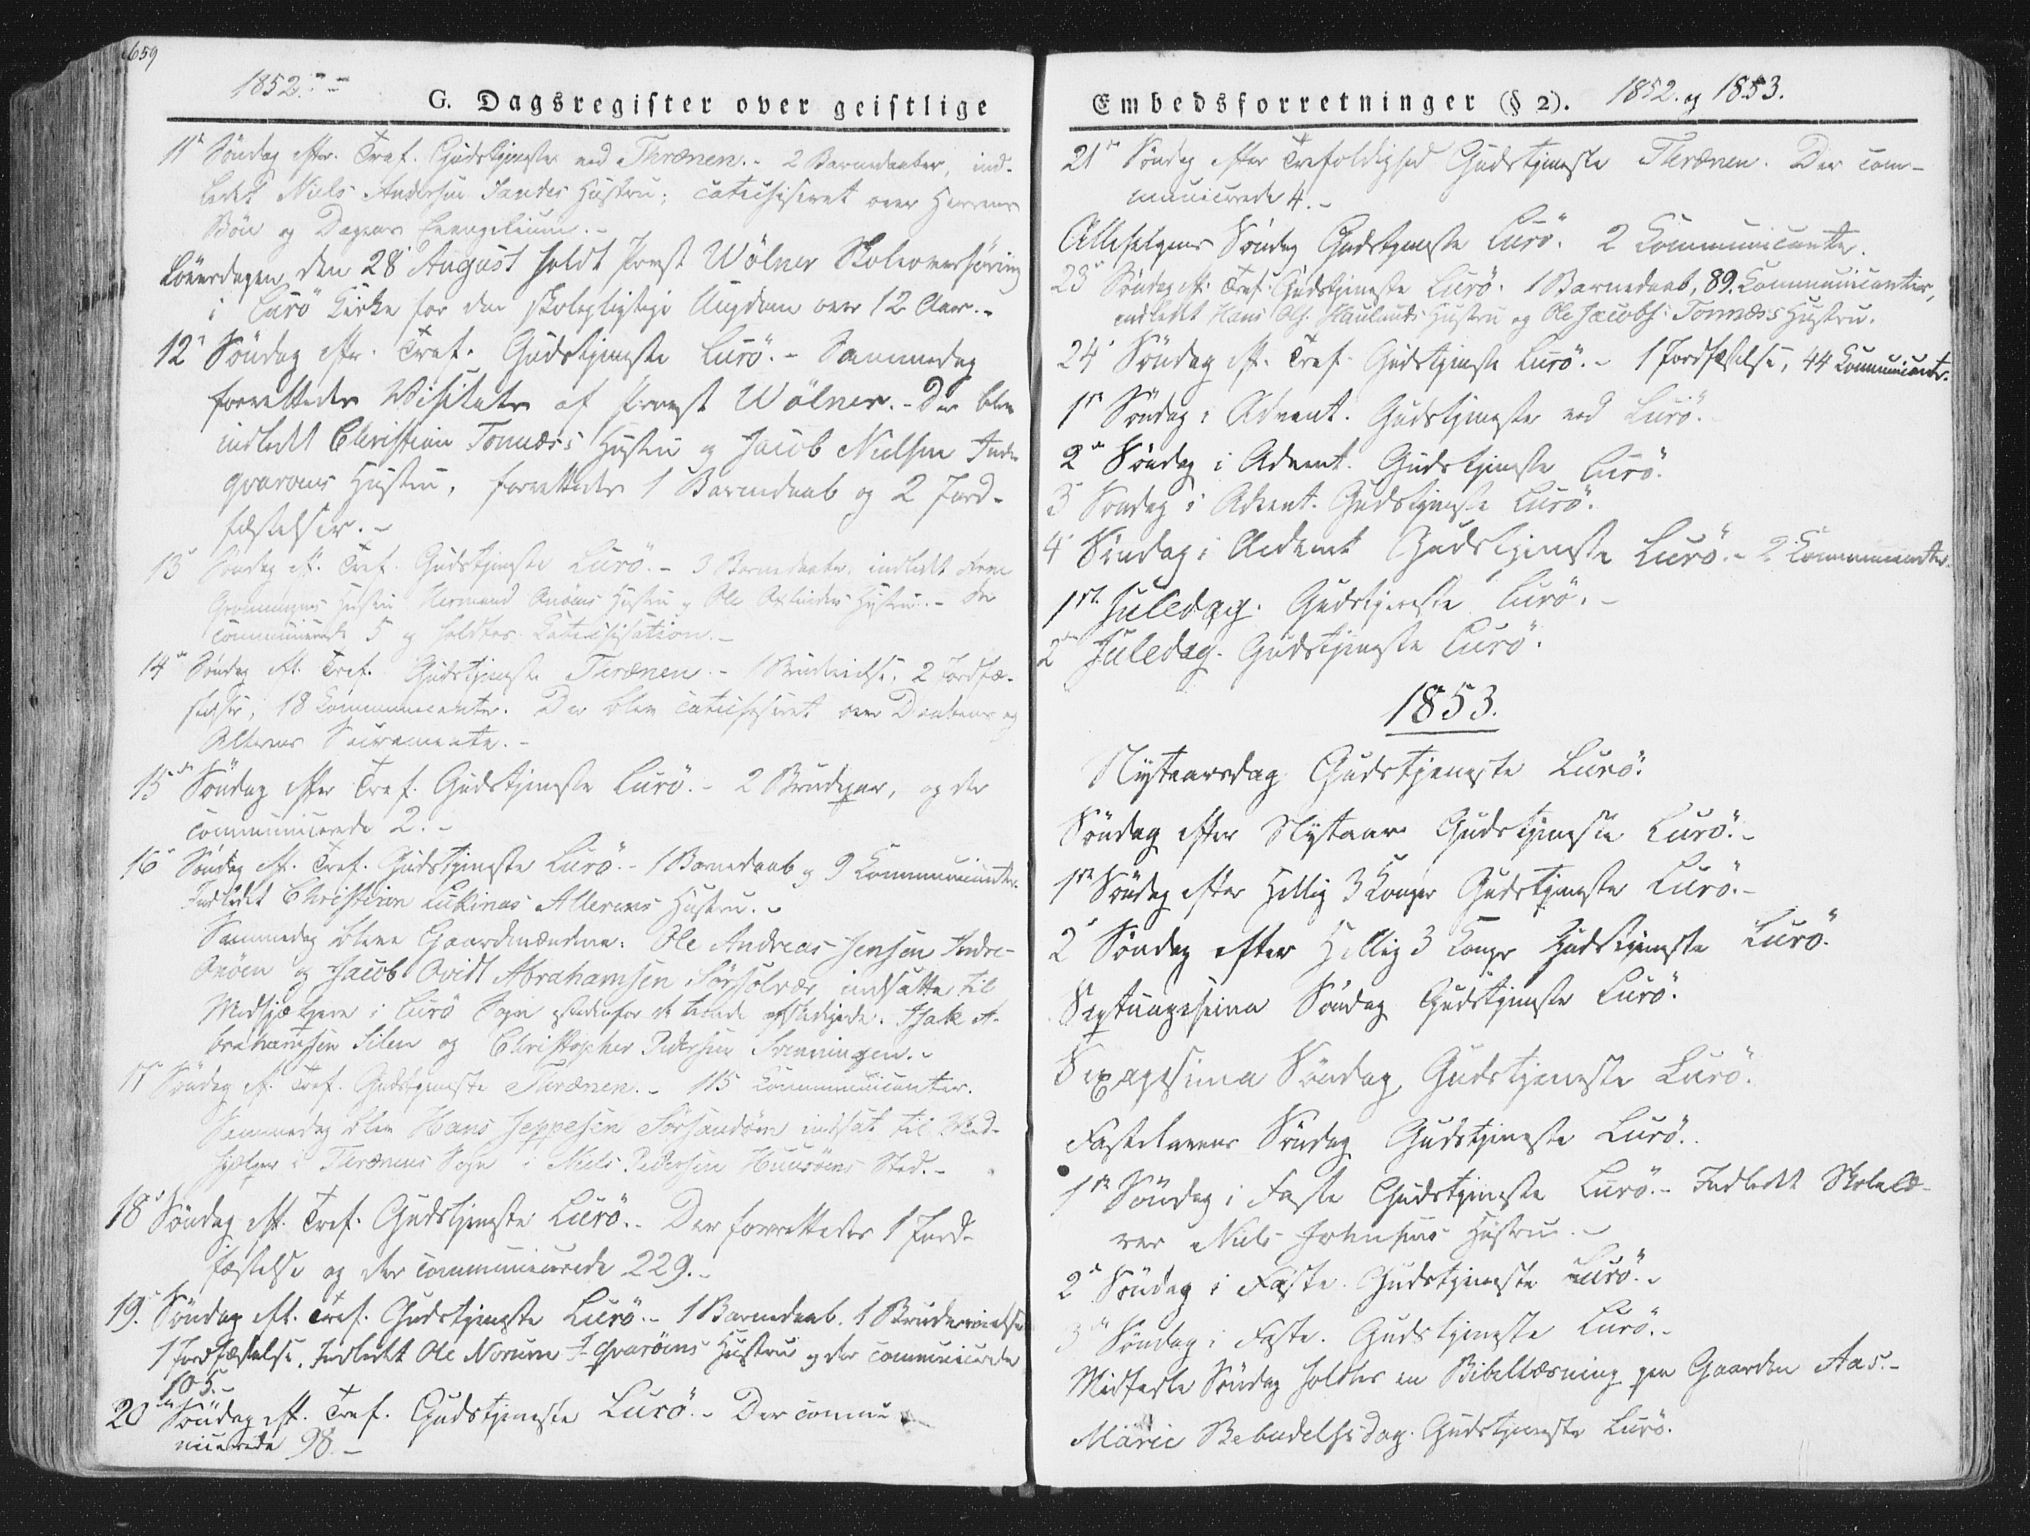 659
1852.
G. Dagsregister over geistlige
11te Søndag efter Tref. Gudstjeneste ved Thrænen. - 2 Barnedaaber, ind-
ledet Niels Andersen Sandes Hustru; catechiseret over Herrens
Bøn og Dagens Evangelium. -
Løverdagen den 28de August holdt Provst Wölner Skoleoverhøring
i Lurö Kirke for den skolepligtige Ungdom over 12 Aar. -
12te Søndag efter Tref. Gudstjeneste Lurö. - Sammedag
forrettedes Visitats af Provst Wölner. - Der blev
indledt Christian Tonnæs's Hustru og Jacob Nielsen Indre
qvarøens Hustru, forrettedes 1 Barnedaab og 2 Jord-
fæstelser. -
13de Søndag eft. Tref. Gudstjeneste Lurö. - 3 Barnedaabe, indledt
Hustru Hermand Anøens Hustru og Ole Hustru. - Der
communicerede 5 og holdtes Catechisation. -
14de Søndag eft. Tref. Gudstjeneste Thrænen. - 1 Brudevielse, 2 Jordfæ-
stelser, 18 Communicanter. Der blev catechiseret over Daabens og
Alterens Sacramente. -
15de Søndag efter Tref. Gudstjeneste Lurö. - 2 Brudepar, og der
communicerede 2. -
16de Søndag eft. Tref. Gudstjeneste Lurö. - 1 Barnedaab og 9 Communicanter.
Indledet Christian Lukinas Allerens Hustru. -
Sammedag bleve Gaardmændene: Ole Andreas Jensen Indre-
Anöen og Jacob Ovidt Abrahamsen Sörsolvær indsatte til
Medhjælpere i Lurö Sogn istedenfor de afskedigede: Isak A-
brahamsen Silen og Christopher Pedersen Sveningen. -
17de Søndag eft. Tref. Gudstjeneste Thrænen. - 115 Communicanter.
Sammedag blev Hans Jeppesen Sörsandöen indsat til Med-
hjælper i Thrænens Sogn i Niels Pedersen Huusöens Sted. -
18de Søndag eft. Tref. Gudstjeneste Lurö. - Der forrettedes 1 Jord-
fæstelse og der communicerede 229. -
19. Søndag eft. Tref. Gudstjeneste Lurö. - 1 Barnedaab. 1 Brudevielse
1 Jordfæstelse. Indledt Ole Norum I. qvaröens Hustru og der communicerede
105. -
20de Søndag eft. Tref. Gudstjeneste Lurö. - Der commu
nicerede 98. -
Embedsforretninger (§ 2). 1852. og 1853.
21de Søndag efter Trefoldighed Gudstjeneste Thrænen. Der com-
municerede 4. -
Allehelgens Søndag Gudstjeneste Lurö. 2 Communicanter.
23de Søndag eft. Tref. Gudstjeneste Lurö. 1 Barnedaab, 89 Communicanter,
indledt Hans Ols. Hauglands Hustru og Ole Jacobs. Tonnæss Hustru.
24de Søndag eft. Tref. Gudstjeneste Lurö. - 1 Jordfæstelse, 44 Communicanter.
1ste Søndag i Advent. Gudstjeneste ved Lurö.
2den Søndag i Advent. Gudstjeneste Lurö.
3 Søndag i Advent. Gudstjeneste Lurö.
4de Søndag i Advent Gudstjeneste Lurö. - 2 Communicanter.
1ste Juledag. Gudstjeneste Lurö. -
2den Juledag. Gudstjeneste Lurö.
1853.
Nytaarsdag Gudstjeneste Lurö.
Søndag efter Nytaar Gudstjeneste Lurö. -
1ste Søndag efter Hellig 3 Konger Gudstjeneste Lurö. -
2den Søndag efter Hellig 3 Konger Gudstjeneste Lurö.
Septuagesima Søndag Gudstjeneste Lurö.
Sexagesima Søndag Gudstjeneste Lurö.
Fastelavens Søndag Gudstjeneste Lurö.
1ste Søndag i Faste Gudstjeneste Lurö. - Indledt Skolelæ-
rer Niels Johnsens Hustru. -
2den Søndag i Faste. Gudstjeneste Lurö. -
3die Søndag i Faste. Gudstjeneste Lurö. -
Midfaste Søndag holdtes en Bibellæsning paa Gaarden Aas. -
Mariæ Bebudelses Dag. Gudstjeneste Lurö.